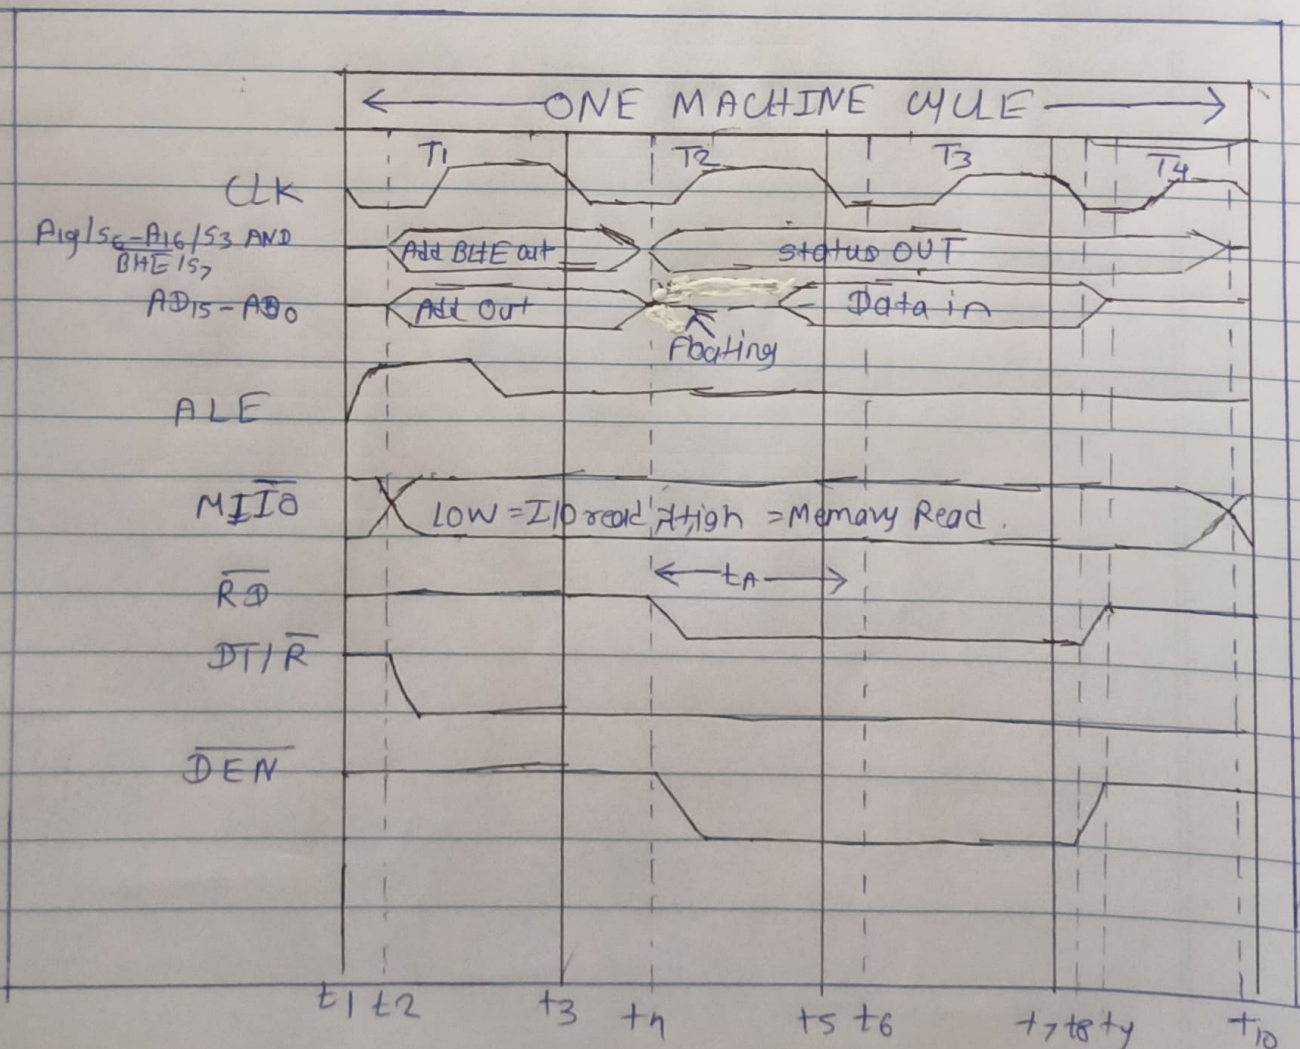 ONE MACHINE CYCLE
T1 T2 T3 T4
CLK
A19/S6-A16/S3 AND
BHE/S7
Add BHE out
Status OUT
AD15-AD0
Add Out
Data in
Floating
ALE
M/IO
LOW = I/O read High = Memary Read.
tA
RD
DT/R
DEN
t1 t2 t3 t4 t5 t6 t7 t8 t9 t10